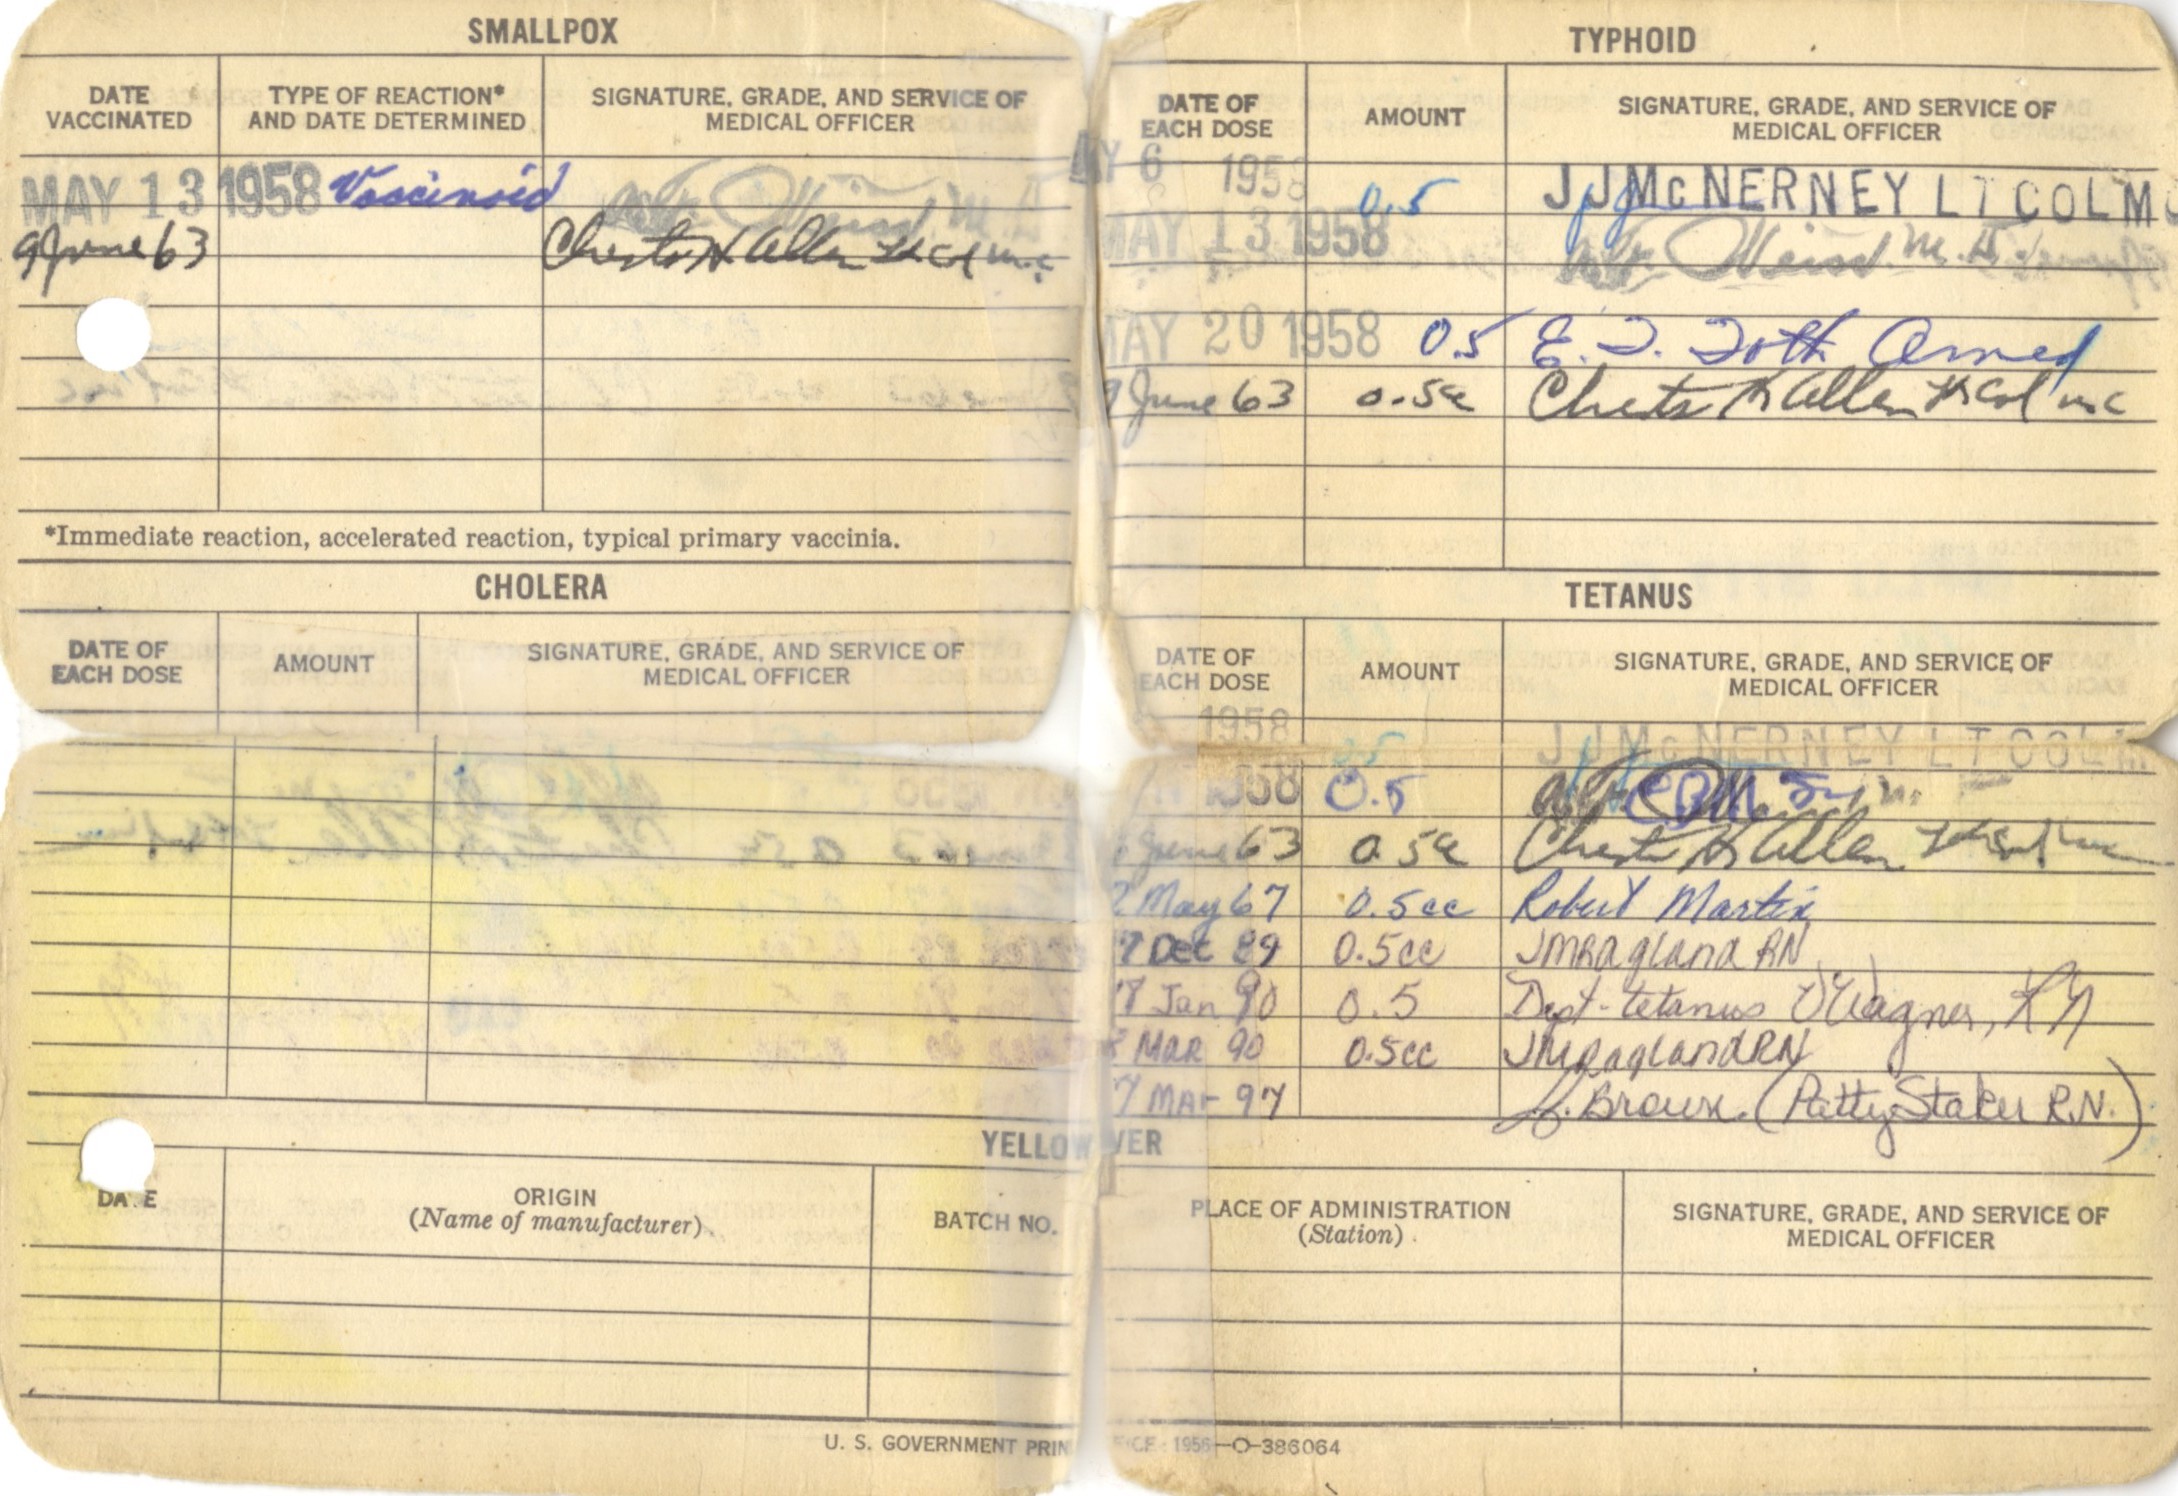 SMALLPOX
DATE VACCINATED
TYPE OF REACTION* AND DATE DETERMINED
SIGNATURE, GRADE, AND SERVICE OF MEDICAL OFFICER
MAY 13 1958 Vaccinoid M.D.
9 June 63 Chester H Allen Lt Col MC
*Immediate reaction, accelerated reaction, typical primary vaccinia.
CHOLERA
DATE OF EACH DOSE
AMOUNT
SIGNATURE, GRADE, AND SERVICE OF MEDICAL OFFICER
TYPHOID
DATE OF EACH DOSE
AMOUNT
SIGNATURE, GRADE, AND SERVICE OF MEDICAL OFFICER
AY 6 1958 0.5 J J McNERNEY LT COL M
MAY 13 1958 M.D.
MAY 20 1958 0.5 E. T. Toth
9 June 63 0.5cc Chester H Allen Lt Col MC
TETANUS
DATE OF EACH DOSE
AMOUNT
SIGNATURE, GRADE, AND SERVICE OF MEDICAL OFFICER
1958 J J McNERNEY LT COL M
1958 0.5
June 63 0.5cc Chester H Allen Lt Col MC
2 May 67 0.5cc Robert Martin
7 Dec 89 0.5cc JMRagland RN
8 Jan 90 0.5 Dipt-tetanus Wagner, RN
8 MAR 90 0.5cc JMRagland RN
7 Mar 97 Brown. (Patty Staker R.N.)
YELLOW VER
DATE
ORIGIN (Name of manufacturer)
BATCH NO.
PLACE OF ADMINISTRATION (Station)
SIGNATURE, GRADE, AND SERVICE OF MEDICAL OFFICER
U. S. GOVERNMENT PRIN ICE : 1956—O-386064